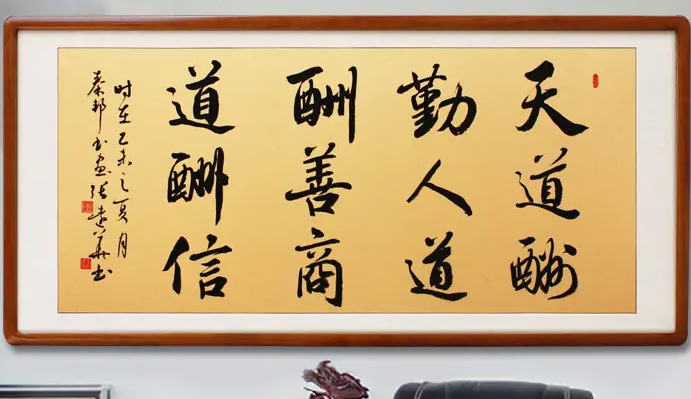 天道酬
勤人道
酬善商
道酬信
时在乙未之夏月
秦邦书画张建华书